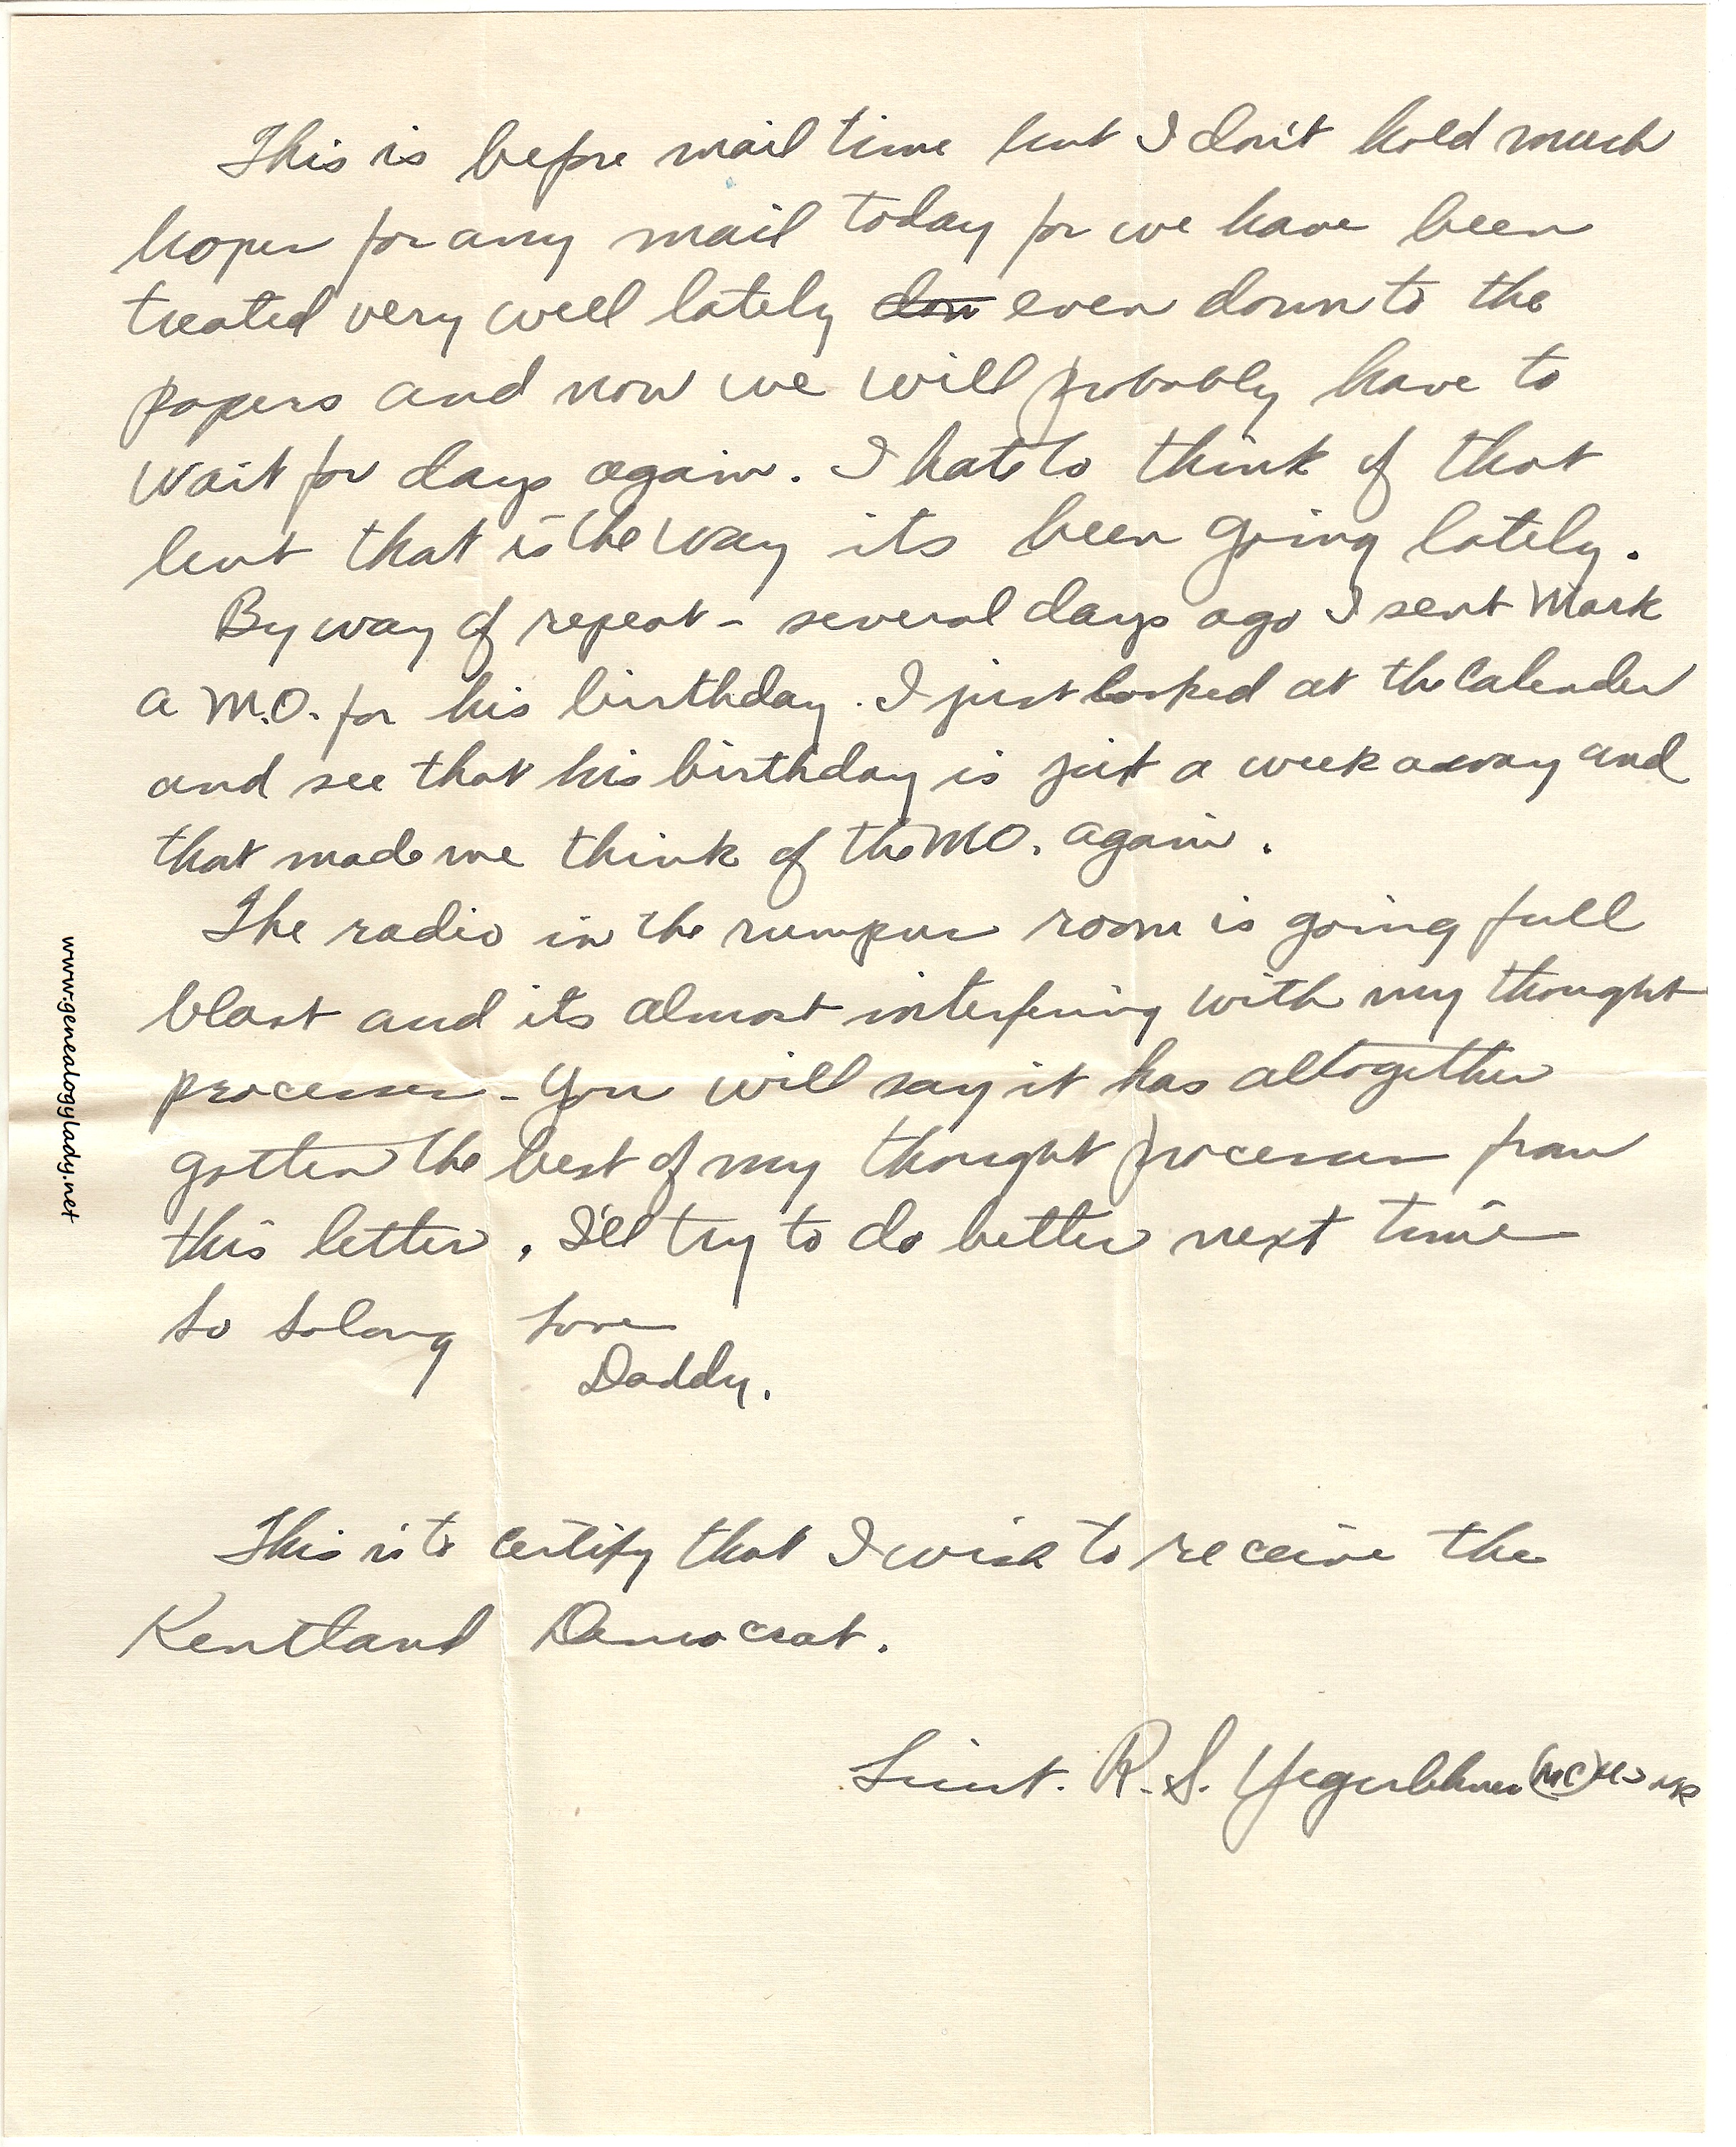 This is before mail time but I don't hold much
hopes for any mail today for we have been
treated very well lately don even down to the
papers and now we will probably have to
wait for days again. I hate to think of that
but that is the way its been going lately.
By way of repeat - several days ago I sent Mark
a M.O. for his birthday. I just looked at the Calender
and see that his birthday is just a week away and
that made me think of the MO. again.
The radio in the rumpus room is going full
blast and its almost interfering with my thought
processes - You will say it has altogether
gotten the best of my thought processes from
this letter. I'll try to do better next time
So So long Love
Daddy.
This is to certify that I wish to receive the
Kentland Democrat.
Lieut. R. S. Yegerlehner (MC)
www.genealogylady.net